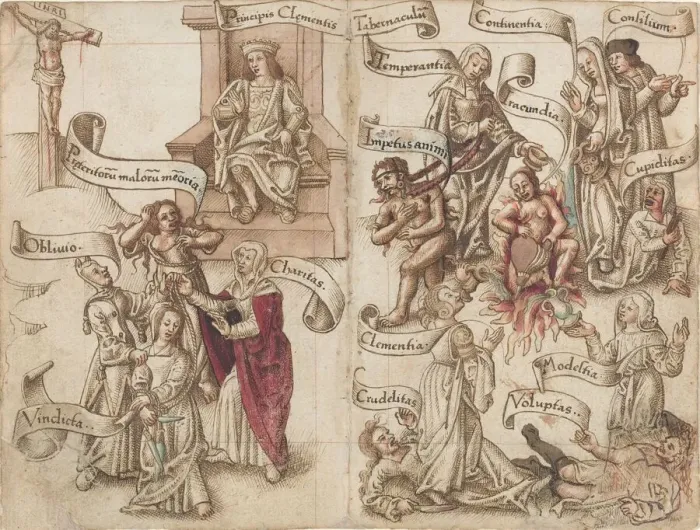 INRI
Principis Clementis
Tabernaculū
Præteritorū malorū meōria.
Oblivio.
Charitas.
Vindicta..
Continentia.
Consilium.
Temperantia
Iracundia.
Impetus animi
Cupiditas.
Clementia.
Modestia
Crudelitas
Voluptas..